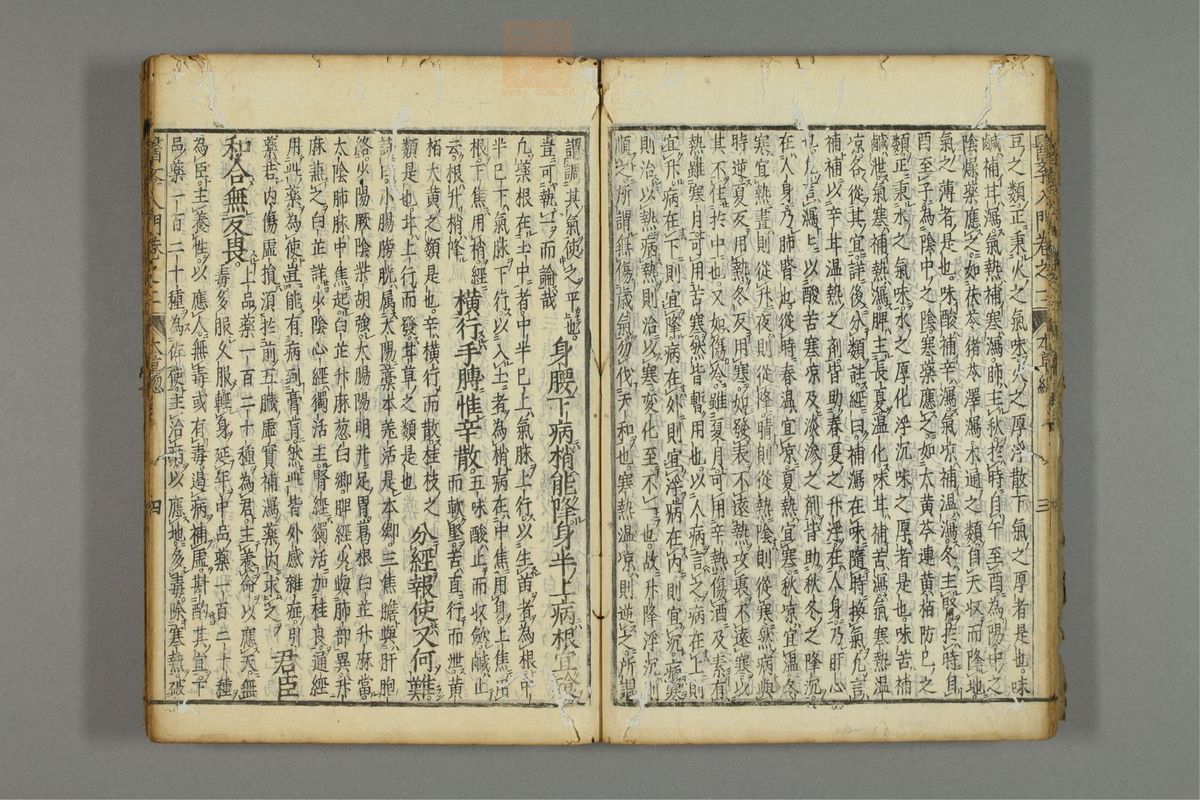 豆之類正秉火之氣味火之厚浮散下氣之厚者是也味
鹹補甘瀉氣熱補寒瀉肺主秋於時自午至酉為陽中之
陰燥藥應之如茯苓猪苓澤瀉木通之類自天收而降地
氣之薄者是也味酸補辛瀉氣凉補温瀉冬主腎於時自
酉至子為陰中之陰寒藥應之如大黄芩連黄栢防己之
類正秉水之氣味水之厚化浮沉味之厚者是也味苦補
鹹泄氣寒補熱瀉脾主長夏温化味甘補苦瀉氣寒熱温
凉各從其宜詳後分類註經曰補瀉在味隨時換氣凢言
補補以辛甘温熱之劑皆助春夏之升浮在人身乃肝心
也凢言瀉瀉以酸苦寒凉及淡滲之劑皆助秋冬之降沉
在人身乃肺腎也從時春温宜凉夏熱宜寒秋凉宜温冬
寒宜熱晝則從升夜則從降晴則從熱陰則從寒然病與
時逆夏反用熱冬反用寒如發表不遠熱攻裏不遠寒以
其不住於中也又如傷冷雖夏月可用辛熱傷酒及素有
熱雖寒月可用苦寒然皆暫用也以人病言之病在上則
宜升病在下則宜降病在外則宜浮病在内則宜沉病寒
則治以熱病熱則治以寒変化至不一也故升降浮沉則
順之所謂無伐歳氣勿伐天和也寒熱温凉則逆之所謂
醫學入門卷之二 本草總 三
調調其氣使之平也 身腰下病梢能降身半上病根宜
豈可執一而論哉
凢藥根在土中者中半已上氣脉上行以生苗者為根中
半已下氣脉下行以入土者為梢病在中焦用身上焦用
根下焦用梢經
云根升梢降 横行手膊惟辛散 五味酸止而收斂鹹止
而軟堅苦直行而泄黄
栢大黄之類是也辛横行而散桂枝之
類是也甘上行而發甘草之類是也 分經報使又何難
詩曰小腸膀胱屬太陽藁本羌活是本郷三焦膽與肝胞
絡少陽厥陰柴胡強大腸陽明并足胃葛根白芷升麻當
太陰肺脉中焦起白芷升麻葱白郷脾經少與肺部異升
麻芍之白芷詳少陰心經獨活主腎經獨活加桂良通經
用此藥為使豈能有病到膏肓然此皆外感雜症引
藥若内傷虚損須於前五臟虚實補瀉藥内求之 君臣
和合無反畏 上品藥一百二十種為君主養命以應天無
毒多服久服輕身延年中品藥一百二十種
為臣主養性以應人無毒或有毒遏病補虚斟酌其宜下
品藥一百二十種為佐使主治病以應地多毒除寒熱破
醫學入門卷之二 本草總 四